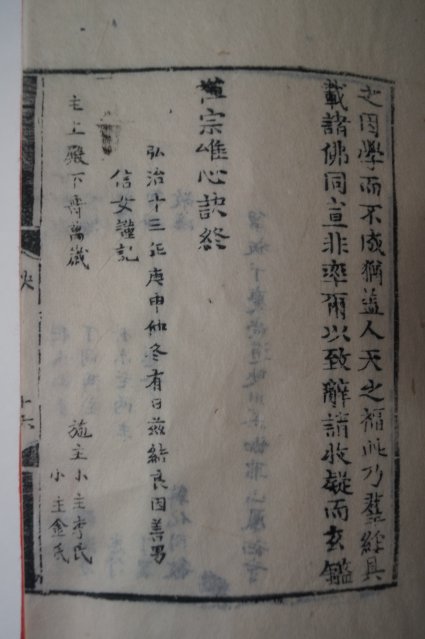 之因學而不成猶益人天之福此乃羣經具
載諸佛同宣非率爾以致辭請收疑而玄鑑
宗唯心訣終
弘治十三祀庚申仲冬有日玆結良因善男
信女謹記
主上殿下壽萬歲
施主小主李氏
小主金氏
决
十六